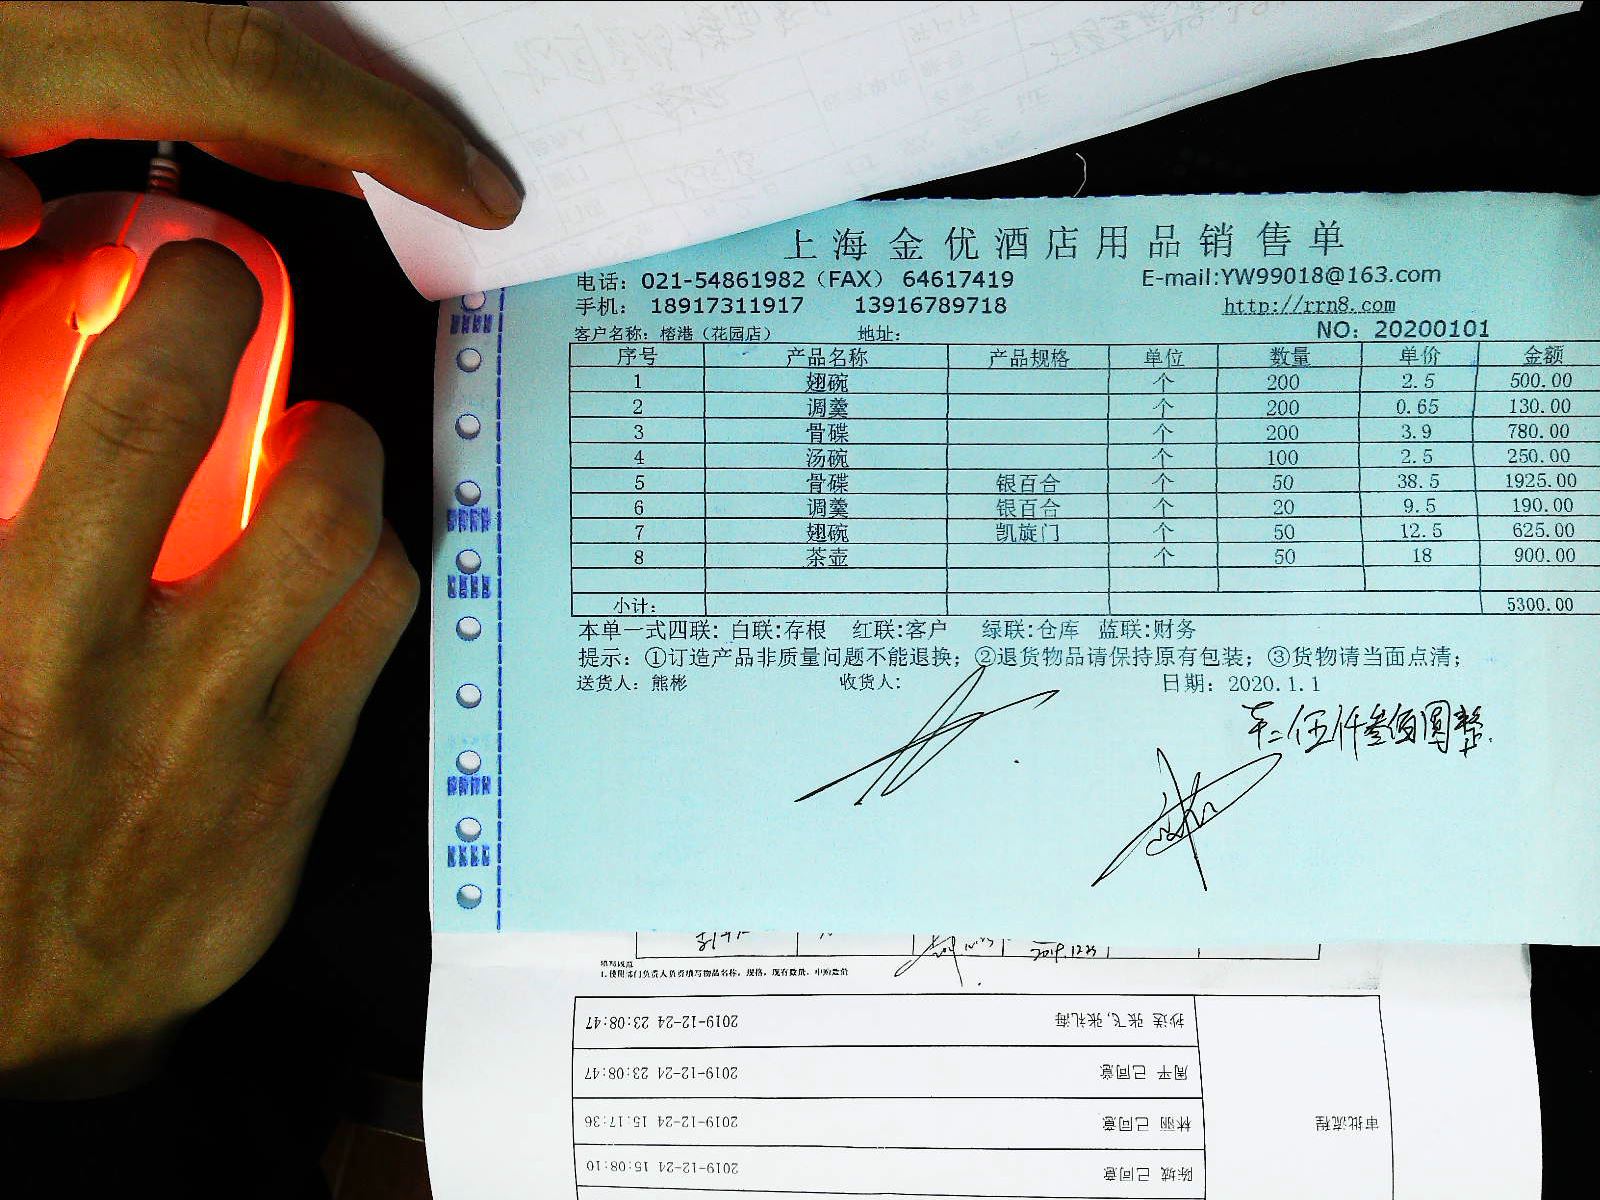 上海金优酒店用品销售单
电话: 021-54861982 (FAX) 64617419 E-mail:YW99018@163.com
手机: 18917311917 13916789718 http://rrn8.com
客户名称: 榕港 (花园店) 地址: NO: 20200101
序号 产品名称 产品规格 单位 数量 单价 金额
1 翅碗 个 200 2.5 500.00
2 调羹 个 200 0.65 130.00
3 骨碟 个 200 3.9 780.00
4 汤碗 个 100 2.5 250.00
5 骨碟 银百合 个 50 38.5 1925.00
6 调羹 银百合 个 20 9.5 190.00
7 翅碗 凯旋门 个 50 12.5 625.00
8 茶壶 个 50 18 900.00
小计: 5300.00
本单一式四联: 白联:存根 红联:客户 绿联:仓库 蓝联:财务
提示: ①订造产品非质量问题不能退换; ②退货物品请保持原有包装; ③货物请当面点清;
送货人: 熊彬 收货人: 日期: 2020.1.1
伍仟叁佰圆整
2019.12.23
1.使用部门负责人负责填写物品名称, 规格, 现有数量, 申购数量
抄送 张飞,张礼海 2019-12-24 23:08:47
周平 已同意 2019-12-24 23:08:47
林丽 已同意 2019-12-24 15:17:36
审批流程
陈城 已同意 2019-12-24 15:08:10